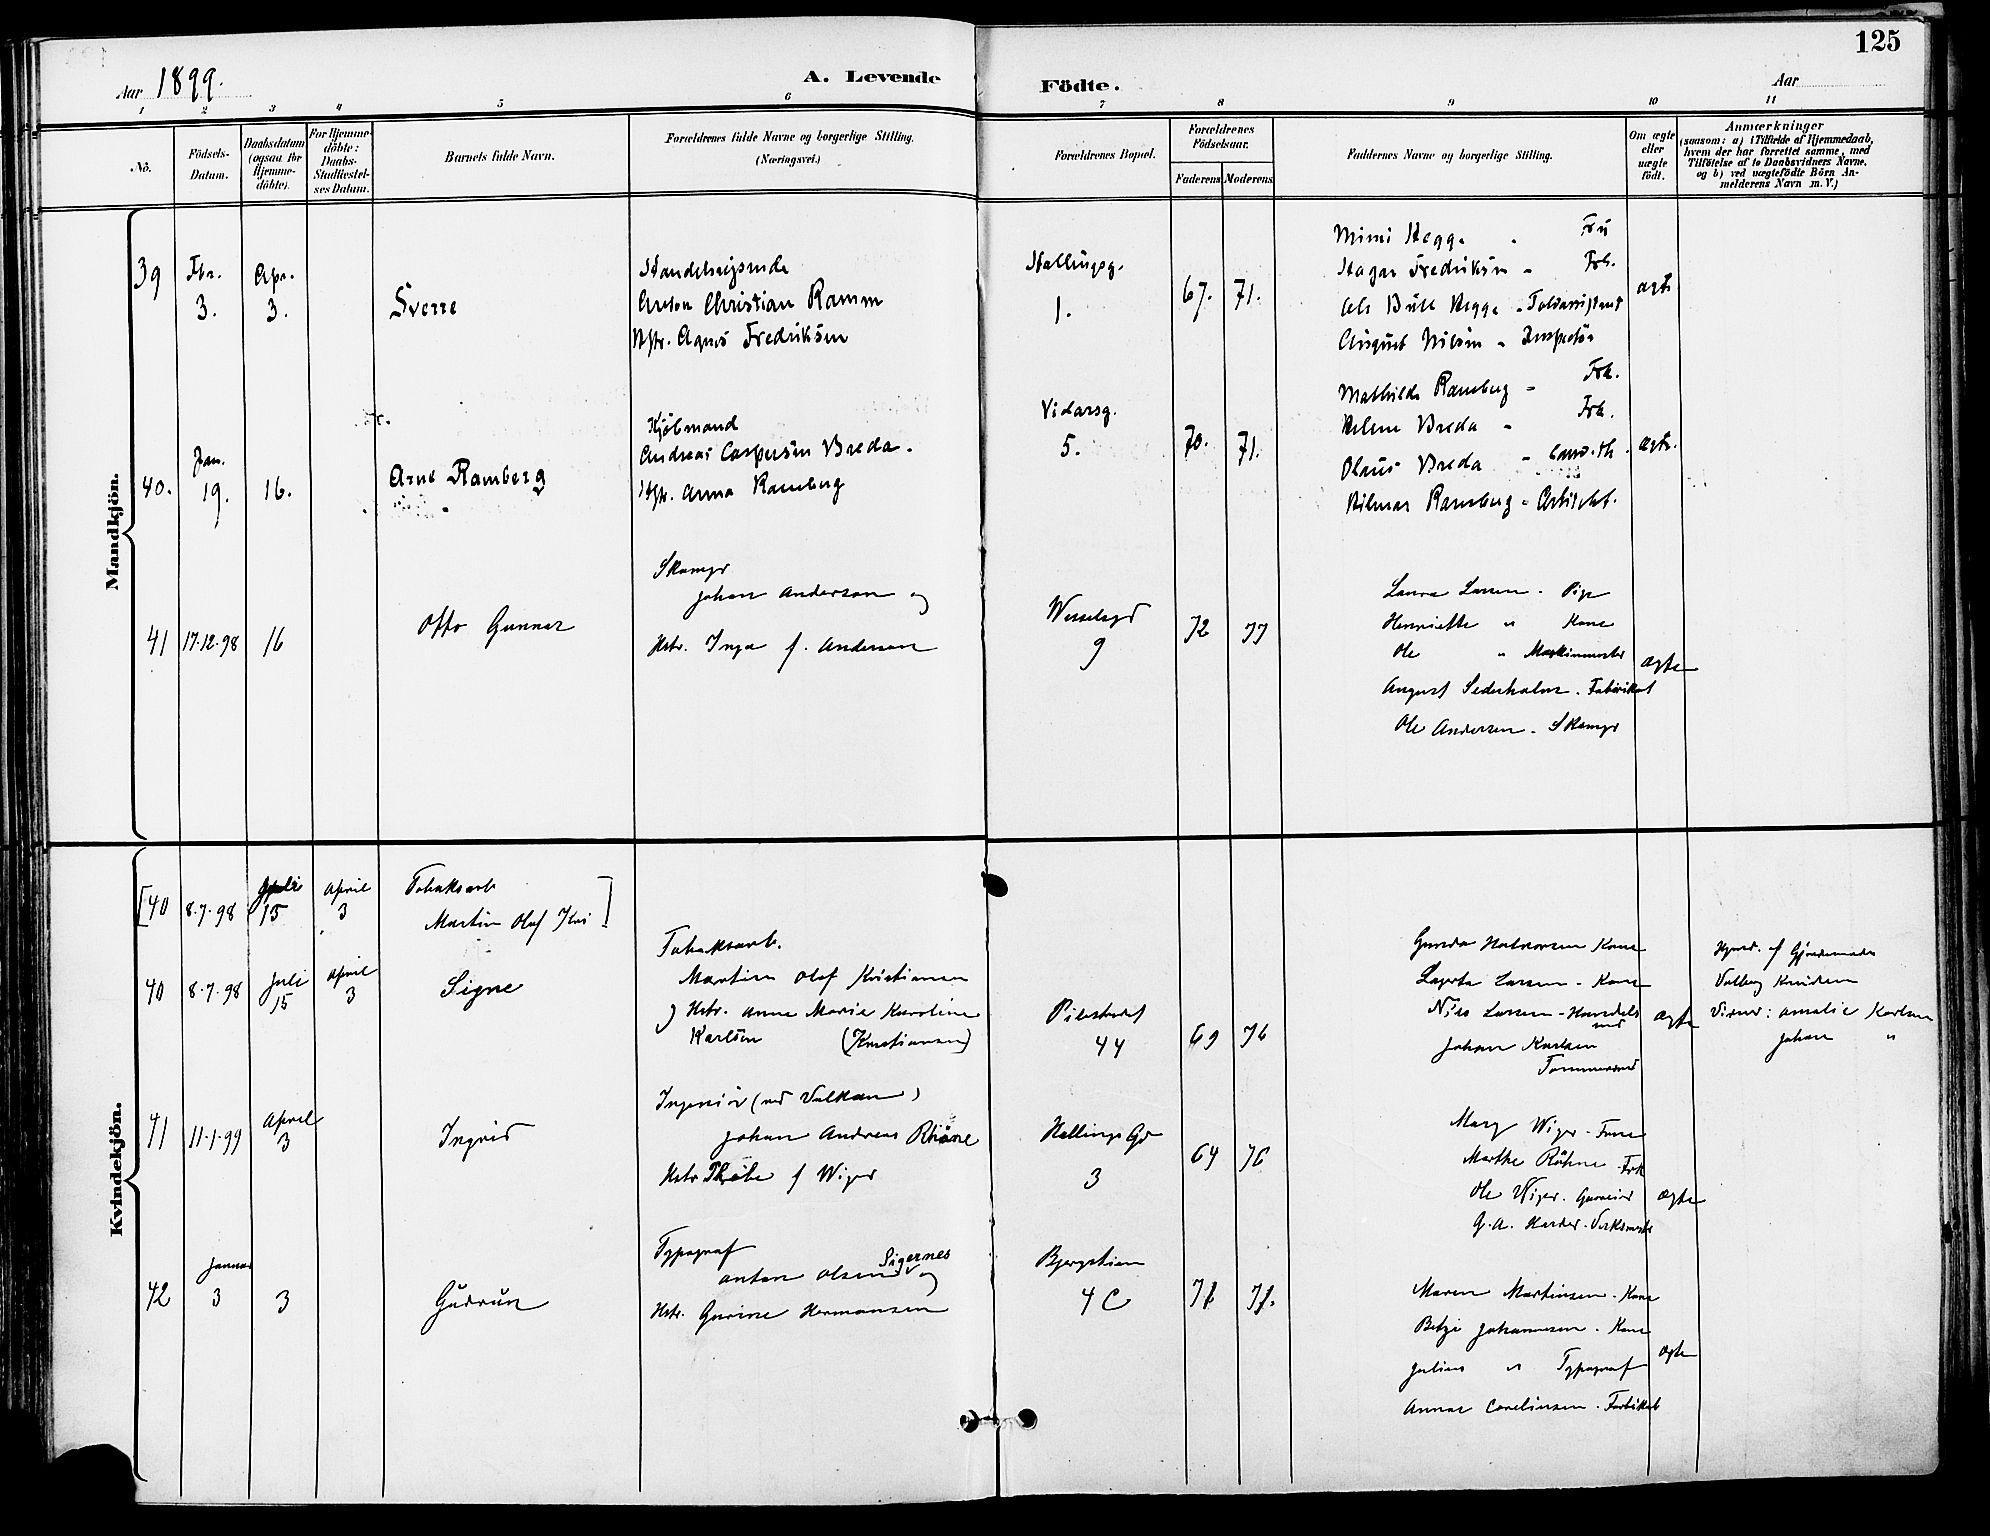 125
Aar 1899.
A. Levende Födte.
Aar
1 2 3 4 5 6 7 8 9 10 11
Nö.
Födsels-
Datum.
Daabsdatum
(ogsaa for
Hjemme-
döbte).
For Hjemme-
döbte:
Daabs-
Stadfæstel-
ses Datum.
Barnets fulde Navn.
Forældrenes fulde Navne og borgerlige Stilling.
(Næringsvei.)
Forældrenes Bopæl.
Forældrenes
Födselsaar.
Faderens Moderens
Faddernes Navne og borgerlige Stilling.
Om ægte
eller
uægte
født.
Anmærkninger
(saasom: a) i Tilfælde af Hjemmedaab,
hvem der har forrettet samme, med
Tilföielse af to Daabsvidners Navne,
og b) ved uægtefödte Börn An-
melderens Navn m. V.)
Mandkjön.
39
Fbr.
3.
Apr.
3.
Sverre
Handelsreisende
Anton Christian Ramm
Hstr. Agnes Fredriksen
Hallingsg.
1.
67. 71.
Mimi Hegge - Fru
Hagar Fredriksen - Frk.
Bull Hegge - Toldassistent
August Nilsen - Inspektør
ægte
40.
Jan.
19.
16.
Arne Ramberg
Kjøbmand
Andreas Caspersen Breda.
Hstr. Anna Ramberg
Vidarsg.
5.
70. 71.
Mathilde Ramberg - Frk.
Helene Breda - Frk.
Olaus Breda - Cand. th.
Hilmar Ramberg - Arkitekt.
ægte.
41
17-12-98
16
Otto Gunnar
Skomgr
Johan Anderson og
Hstr. Inga f. Anderson
Wesselsgd
9
72 77
Laura Larsen - Pige
Henriette " Kone
Ole " Maskinmester
August Sederholm - Fabrikat
Ole Andersen - Skomgr
ægte
Kvindekjön.
[40
8-7-98
Juli
15
April
3
Tobaksarb
Martin Olaf ]
40
8-7-98
Juli
15
April
3
Signe
Tobaksarb.
Martin Olaf Kristiansen
Hstr. Anna Marie Karoline
Karlsen (Kristiansen)
Pilestrædet
44
69 76
Gunda Halvorsen Kone
Lagerta Larsen - Kone
Nils Larsen - Handels
md
Johan Karlsen
Tømmermd
ægte
Hjmd. af Gjordemoder
Valborg Knudsen
Vidner: Amalie Karlsen
Johan "
41
11-1-99
April
3
Ingrid
Ingeniør (ved Vulkan)
Johan Andreas Rhöne
Hstr f Wiger
Hallings Gd
3
64 76
Mary Wiger - Frue
Marthe Röhne Frk
Ole Wiger.
G. A. Harder - Verksmester
ægte
42
Januar
3
3
Gudrun
Typograf
Anton Olsen Sigernes og
Hstr. Gurine Hermansen
Bjergstien
4 C
71.
Maren Martinsen - Kone
Betzi Johannesen - Kone
Julius " Typograf
Annar Carelinsen -
ægte